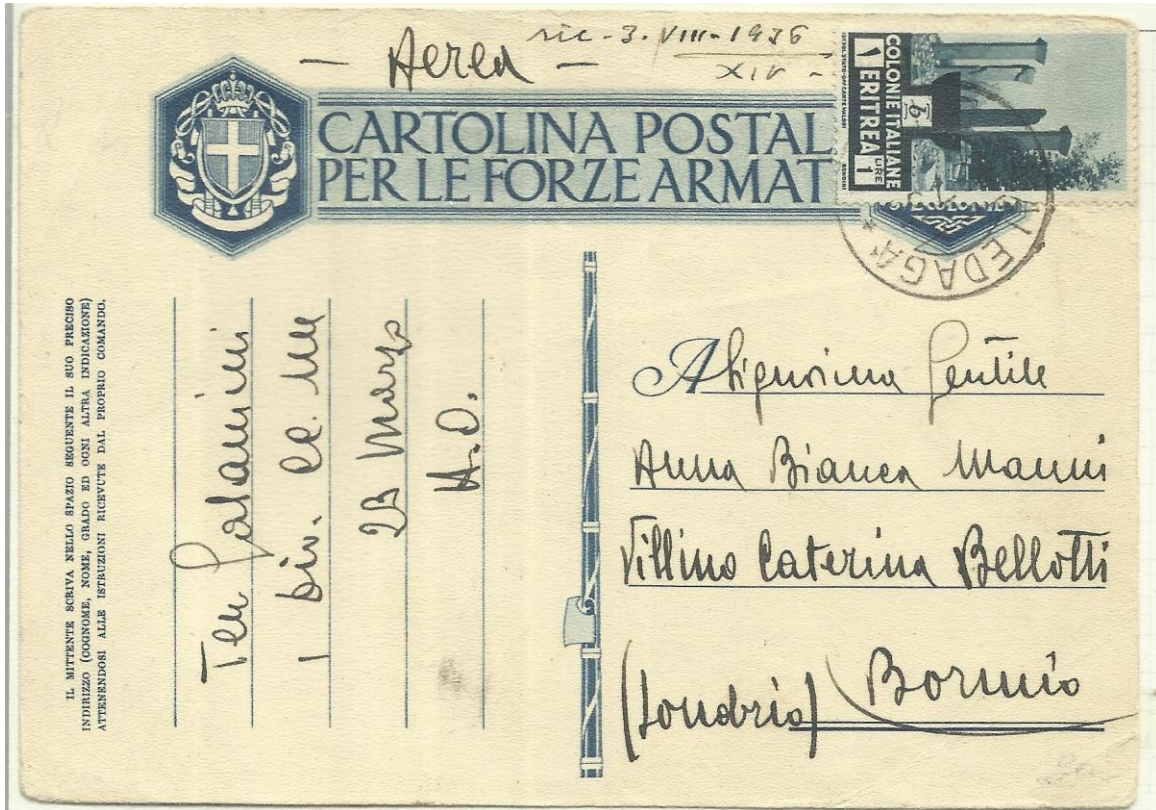 — Aerea —
ric. 3. VIII. 1936
XIV
CARTOLINA POSTAL
PER LE FORZE ARMAT
COLONIE ITALIANE
1 ERITREA LIRE 1
LEDAGA' *
IL MITTENTE SCRIVA NELLO SPAZIO SEGUENTE IL SUO PRECISO
INDIRIZZO (COGNOME, NOME, GRADO ED OGNI ALTRA INDICAZIONE)
ATTENENDOSI ALLE ISTRUZIONI RICEVUTE DAL PROPRIO COMANDO.
Ten
1 Div. CC. NN
23 Marzo
A.O.
A Signorina Gentile
Anna Bianca Manni
Villino Caterina Bellotti
Bormio
(Sondrio)